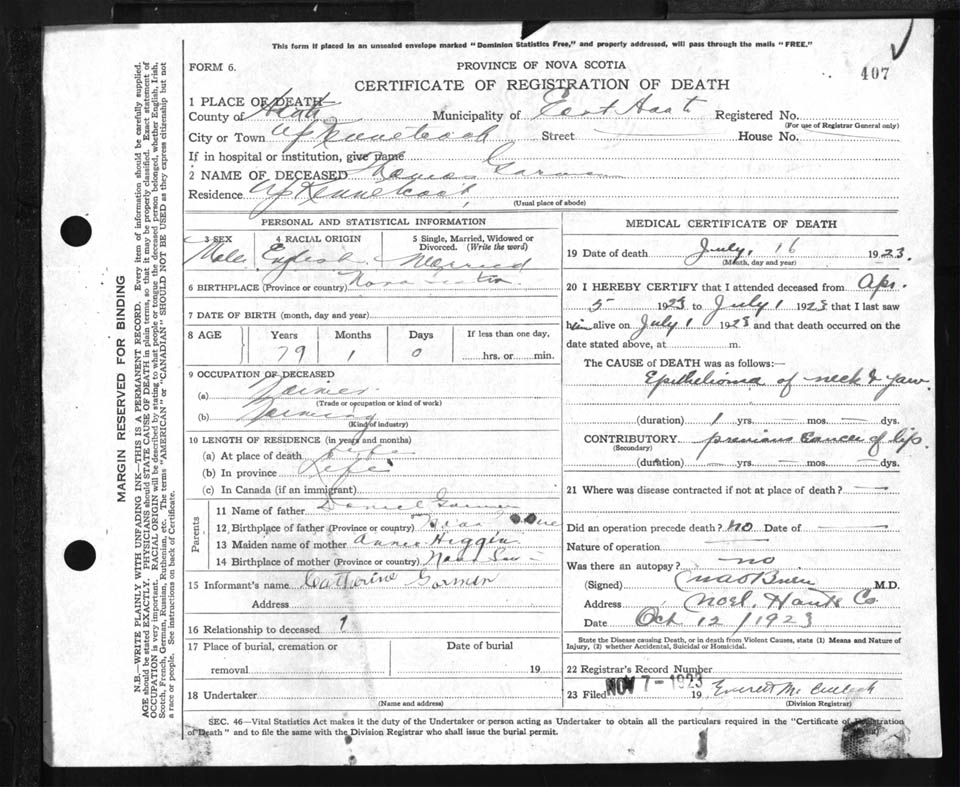 This form if placed in an unsealed envelope marked "Dominion Statistics Free," and properly addressed, will pass through the mails "FREE."
FORM 6.
PROVINCE OF NOVA SCOTIA
407
CERTIFICATE OF REGISTRATION OF DEATH
1 PLACE OF DEATH
County of Hants Municipality of East Hants Registered No.
(For use of Registrar General only)
City or Town Up Kennetcook Street House No.
If in hospital or institution, give name
2 NAME OF DECEASED Thomas
Residence Up Kennetcook
(Usual place of abode)
PERSONAL AND STATISTICAL INFORMATION
3 SEX 4 RACIAL ORIGIN 5 Single, Married, Widowed or Divorced. (Write the word)
Male English Married
6 BIRTHPLACE (Province or country) Nova Scotia
7 DATE OF BIRTH (month, day and year)
8 AGE Years Months Days If less than one day,
79 1 0 hrs. or min.
9 OCCUPATION OF DECEASED
(a)
(Trade or occupation or kind of work)
(b)
(Kind of industry)
10 LENGTH OF RESIDENCE (in years and months)
(a) At place of death Life
(b) In province Life
(c) In Canada (if an immigrant)
Parents
11 Name of father Daniel
12 Birthplace of father (Province or country)
13 Maiden name of mother Annie Higgins
14 Birthplace of mother (Province or country) Nova
15 Informant's name Catherine Gormen
Address
16 Relationship to deceased
17 Place of burial, cremation or removal Date of burial 19
18 Undertaker
(Name and address)
MEDICAL CERTIFICATE OF DEATH
19 Date of death July, 16 1923.
(Month, day and year)
20 I HEREBY CERTIFY that I attended deceased from Apr.
5 1923 to July 1 1923 that I last saw
him alive on July 1 1923 and that death occurred on
date stated above, at m.
The CAUSE of DEATH was as follows:—
Epithelioma of neck & jaw.
(duration) 1 yrs. — mos. — dys.
CONTRIBUTORY previous cancer of lip.
(Secondary)
(duration) — yrs. — mos. — dys.
21 Where was disease contracted if not at place of death? —
Did an operation precede death? no Date of —
Nature of operation —
Was there an autopsy? no
(Signed) M.D.
Address Noel, Hants Co
Date Oct 12/1923
State the Disease causing Death, or in death from Violent Causes, state (1) Means and Nature of Injury, (2) whether Accidental, Suicidal or Homicidal.
22 Registrar's Record Number
23 Filed NOV 7-1923 19 Everett McCulloch
(Division Registrar)
SEC. 46—Vital Statistics Act makes it the duty of the Undertaker or person acting as Undertaker to obtain all the particulars required in the "Certificate of Registration
of Death" and to file the same with the Division Registrar who shall issue the burial permit.
MARGIN RESERVED FOR BINDING
N.B.—WRITE PLAINLY WITH UNFADING INK—THIS IS A PERMANENT RECORD. Every item of information should be carefully supplied.
AGE should be stated EXACTLY. PHYSICIANS should STATE CAUSE OF DEATH in plain terms, so that it may be properly classified. Exact statement of
OCCUPATION is very important. RACIAL ORIGIN will be described by stating to what people or tongue the deceased person belonged, whether English, Irish,
Scotch, French, German, Russian, Ruthenian, etc. The terms "AMERICAN" or "CANADIAN" SHOULD NOT BE USED as they express citizenship but not
a race or people. See instructions on back of Certificate.